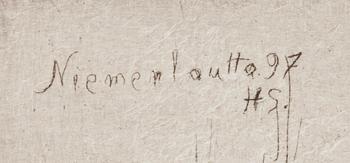 Niemenlautta.97
HS.